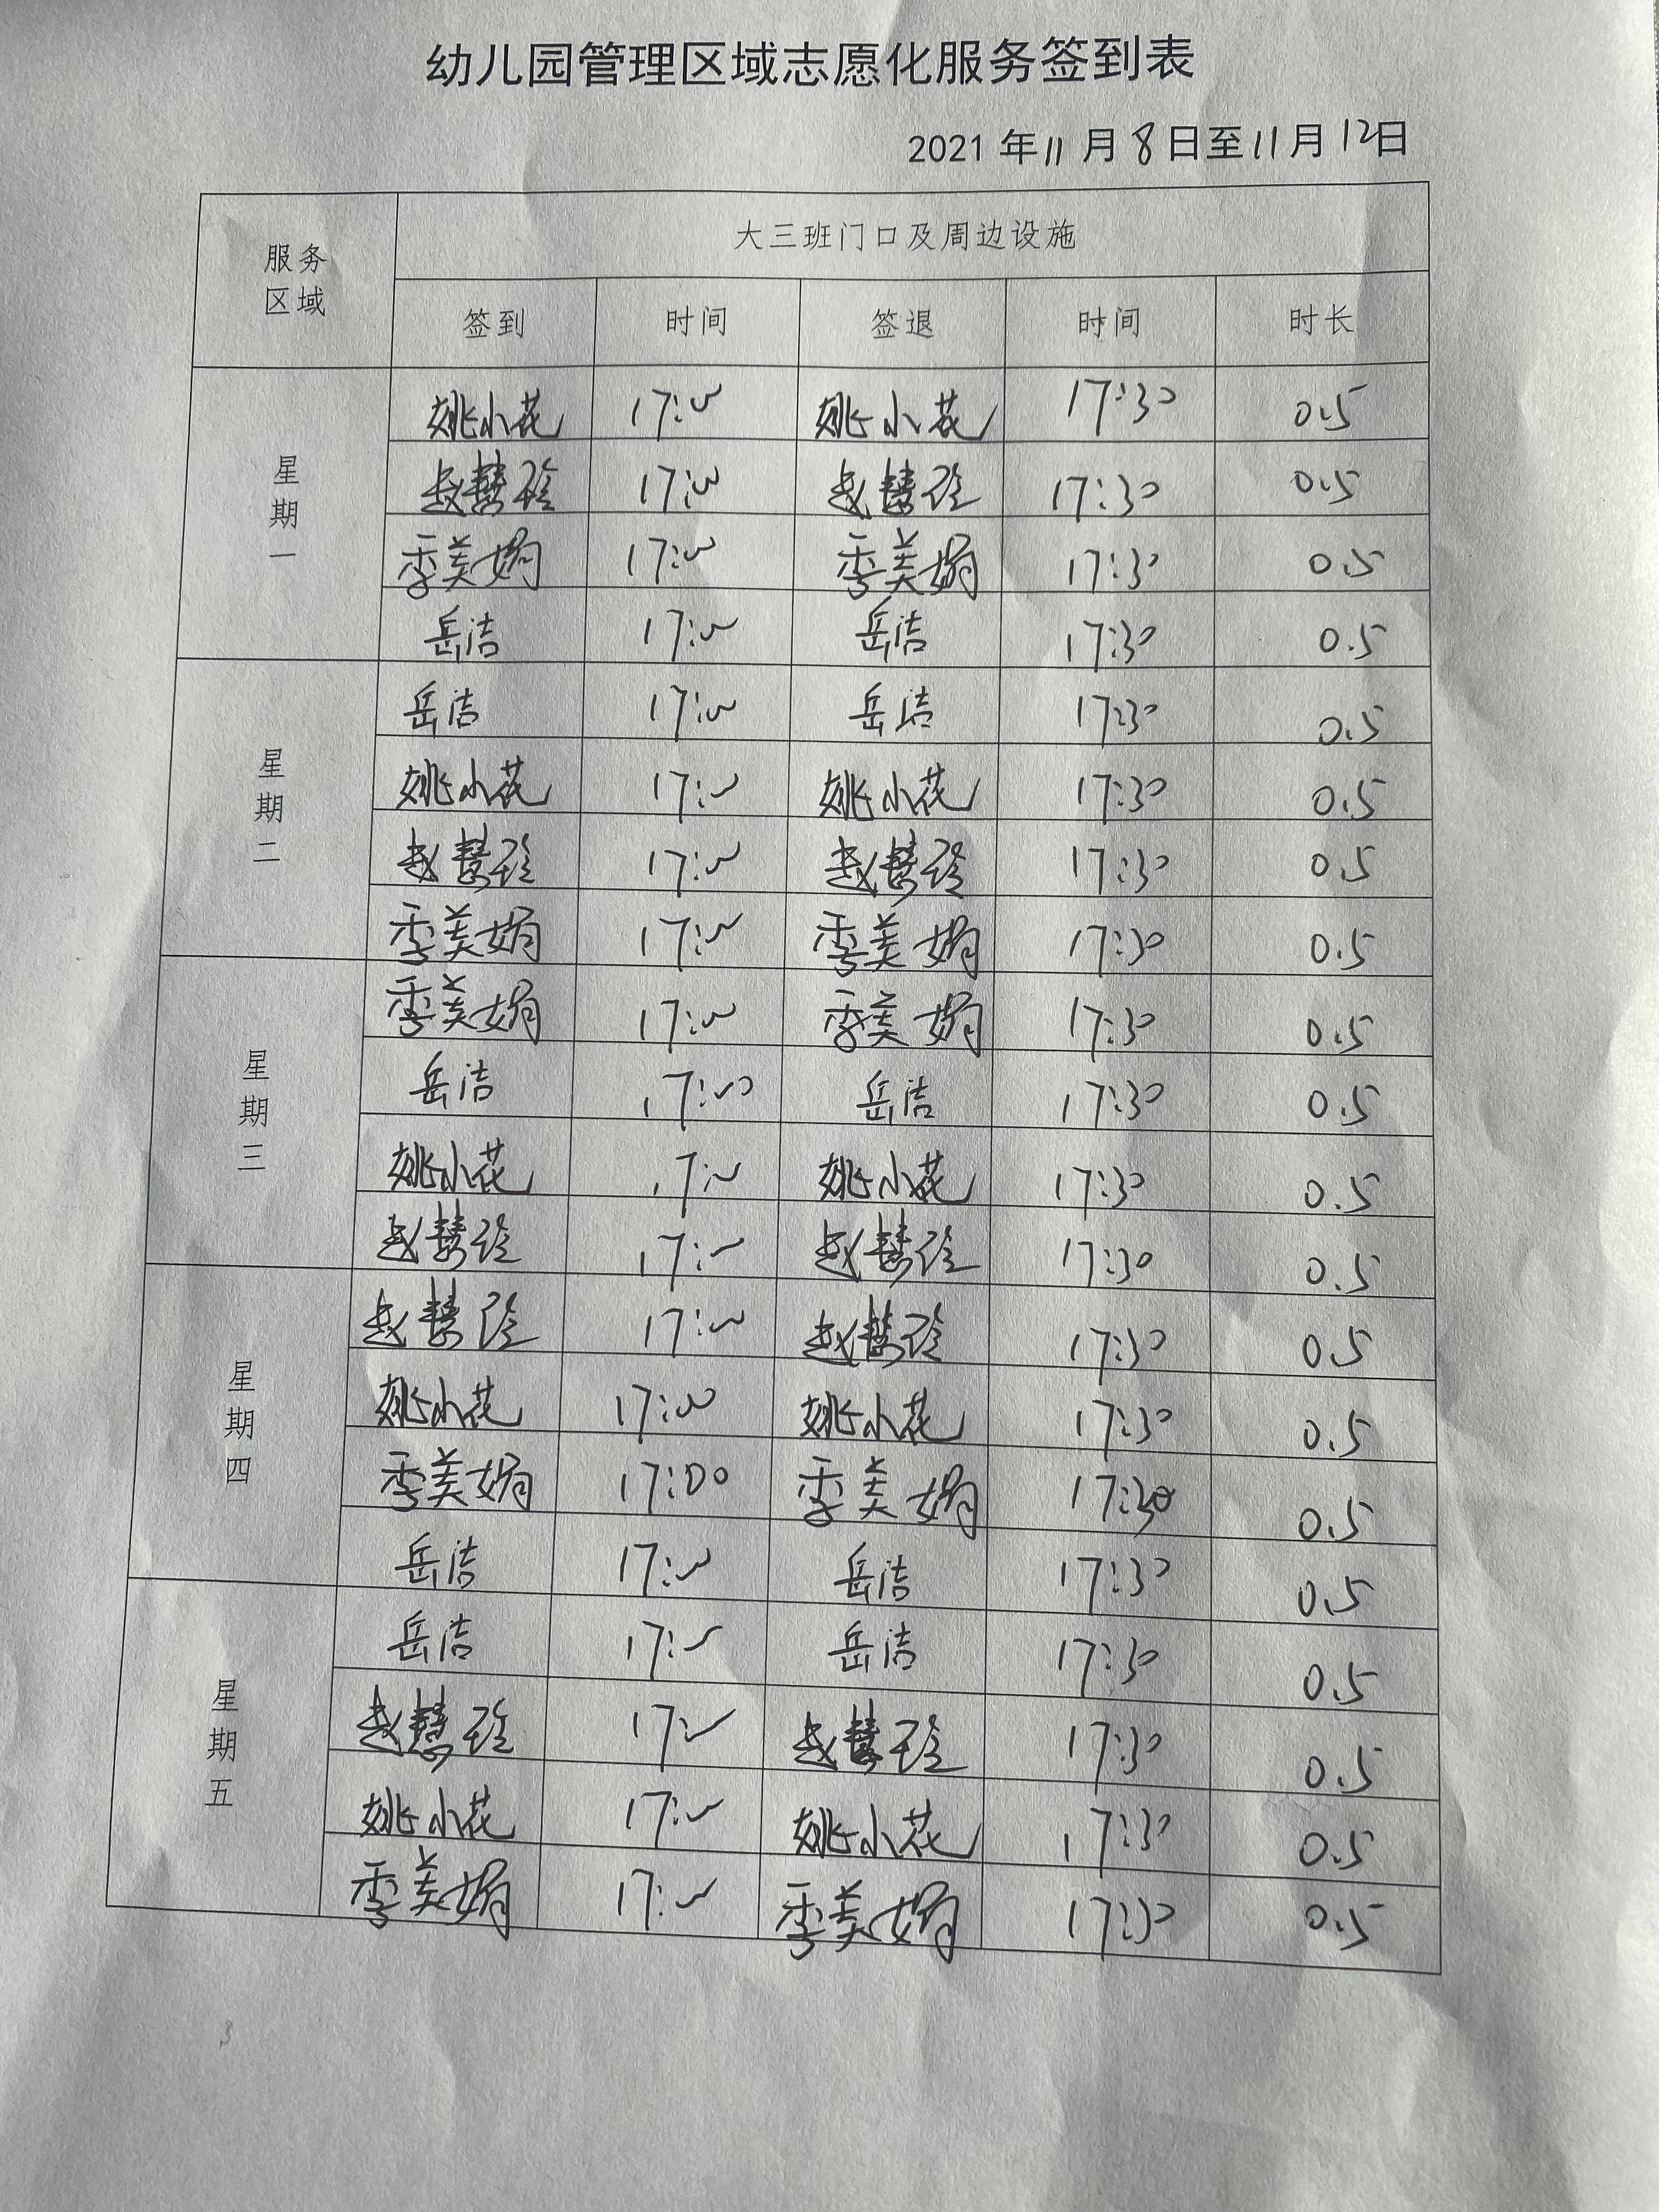 幼儿园管理区域志愿化服务签到表
2021 年 11 月 8 日至 11 月 12日
服务区域 大三班门口及周边设施
签到 时间 签退 时间 时长
星期一
姚小花 17:00 姚小花 17:30 0.5
赵慧玲 17:00 赵慧玲 17:30 0.5
季美娟 17:00 季美娟 17:30 0.5
岳洁 17:00 岳洁 17:30 0.5
星期二
岳洁 17:00 岳洁 17:30 0.5
姚小花 17:00 姚小花 17:30 0.5
赵慧玲 17:00 赵慧玲 17:30 0.5
季美娟 17:00 季美娟 17:30 0.5
星期三
季美娟 17:00 季美娟 17:30 0.5
岳洁 17:00 岳洁 17:30 0.5
姚小花 17:00 姚小花 17:30 0.5
赵慧玲 17:00 赵慧玲 17:30 0.5
星期四
赵慧玲 17:00 赵慧玲 17:30 0.5
姚小花 17:00 姚小花 17:30 0.5
季美娟 17:00 季美娟 17:30 0.5
岳洁 17:00 岳洁 17:30 0.5
星期五
岳洁 17:00 岳洁 17:30 0.5
赵慧玲 17:00 赵慧玲 17:30 0.5
姚小花 17:00 姚小花 17:30 0.5
季美娟 17:00 季美娟 17:30 0.5